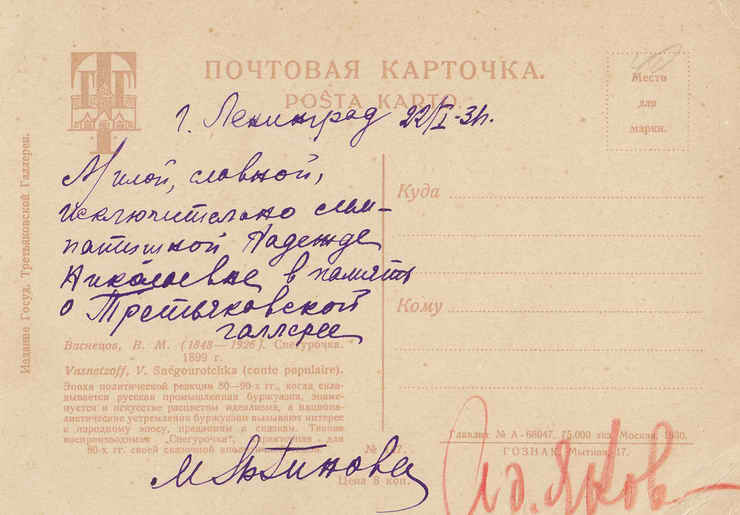 ПОЧТОВАЯ КАРТОЧКА.
POŜTA KARTO
Место
для
марки.
г. Ленинград 22/I-31г.
Милой, славной,
исключительно сим-
патичной Надежде
Николаевне в память
о Третьяковской
галлерее
Куда
Кому
Издание Госуд. Третьяковской Галлереи.
Васнецов, В. М. (1848—1926). Снегурочка.
1899 г.
Vasnetzoff, V. Snégourotchka (conte populaire).
Эпоха политической реакции 80—90-х гг., когда скла-
дывается русская промышленная буржуазия, знаме-
нуется в искусстве расцветом идеализма, а национа-
листические устремления буржуазии вызывают интерес
к народному эпосу, преданиям и сказкам. Такова
воспроизводимая "Снегурочка", характерная для
90-х гг. своей сказочной
№
Цена 8 коп.
Главлит № А-68047. 75.000 экз. Москва, 1930.
ГОЗНАК. Мытная, 17.